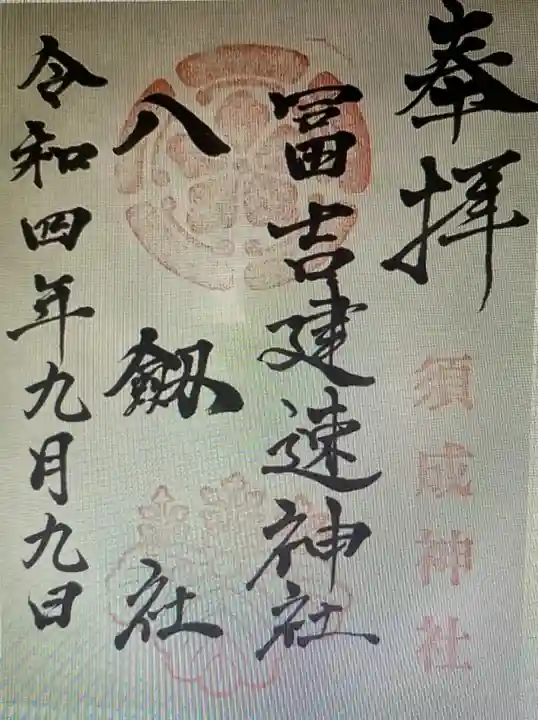 奉拝
須成神社
冨吉建速神社
八劔社
令和四年九月九日